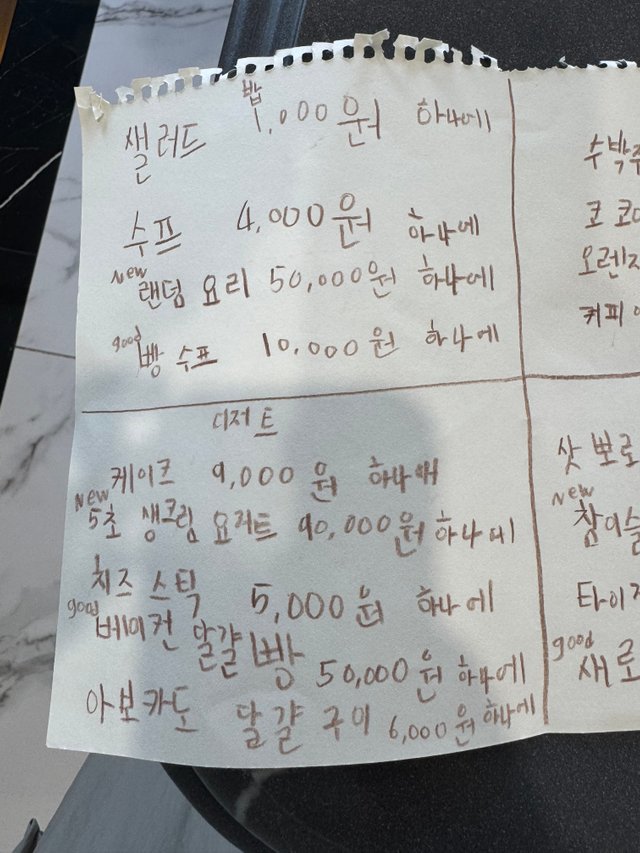 밥
샐러드 1,000원 하나에
수프 4,000원 하나에
New
랜덤 요리 50,000원 하나에
good
빵 수프 10,000원 하나에
디저트
케이크 9,000원 하나에
New
5초 생크림 요저트 90,000원 하나에
치즈 스틱 5,000원 하나에
good
베이컨 달걀빵 50,000원 하나에
아보카도 달걀 구이 6,000원 하나에
수박주
코코
오렌지
커피
샷 뽀로
New
참이슬
타이거
good
새로